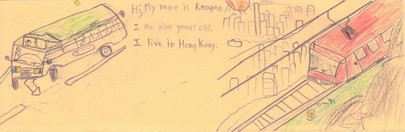 Hi, My name is Keagne.
I am nine years old.
I live in Hong Kong.